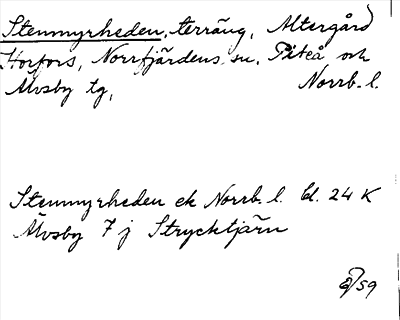 Stenmyrheden, terräng, Altergård
Horfors, Norrfjärdens sn. Piteå och
Älvsby tg, Norrb. l.
Stenmyrheden ek Norrb. l. bl. 24 K
Älvsby 7 j Strycktjärn
/59